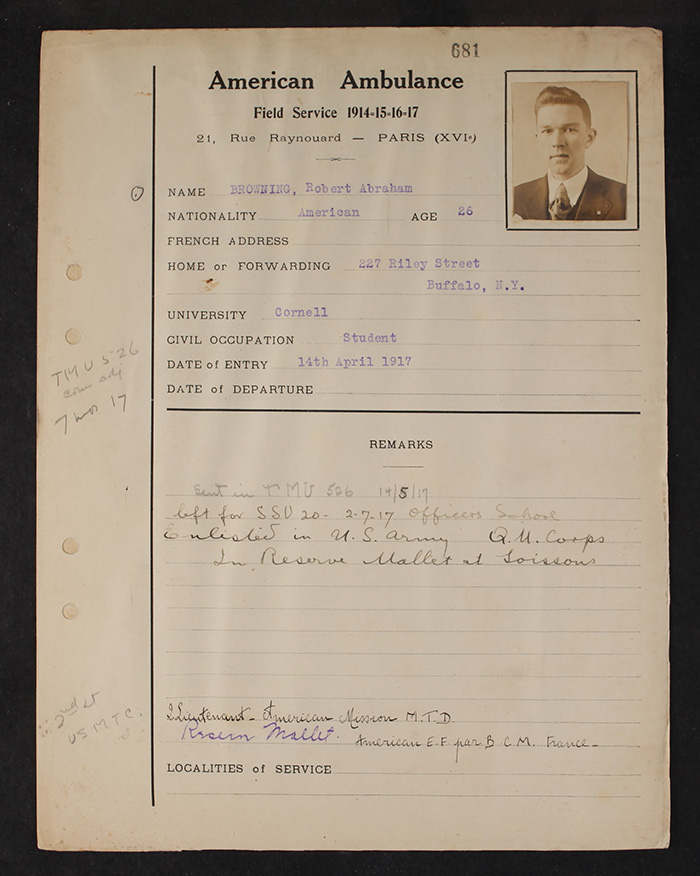 681
American Ambulance
Field Service 1914-15-16-17
21, Rue Raynouard — PARIS (XVIe)
NAME BROWNING, Robert Abraham
NATIONALITY American AGE 26
FRENCH ADDRESS
HOME or FORWARDING 227 Riley Street
Buffalo, N.Y.
UNIVERSITY Cornell
CIVIL OCCUPATION Student
DATE of ENTRY 14th April 1917
DATE of DEPARTURE
TMU 526
7 mos 17
REMARKS
Sent in TMU 526 14/5/17
left for SSU 20 - 2-7-17 Officers School
Enlisted in U.S. Army Q.M. Corps
In Reserve Mallet at Soissons
2nd Lt
US M.T.C.
2 Lieutenant - American Mission M.T.D.
Reserve Mallet. American E.F. par B.C.M. France -
LOCALITIES of SERVICE